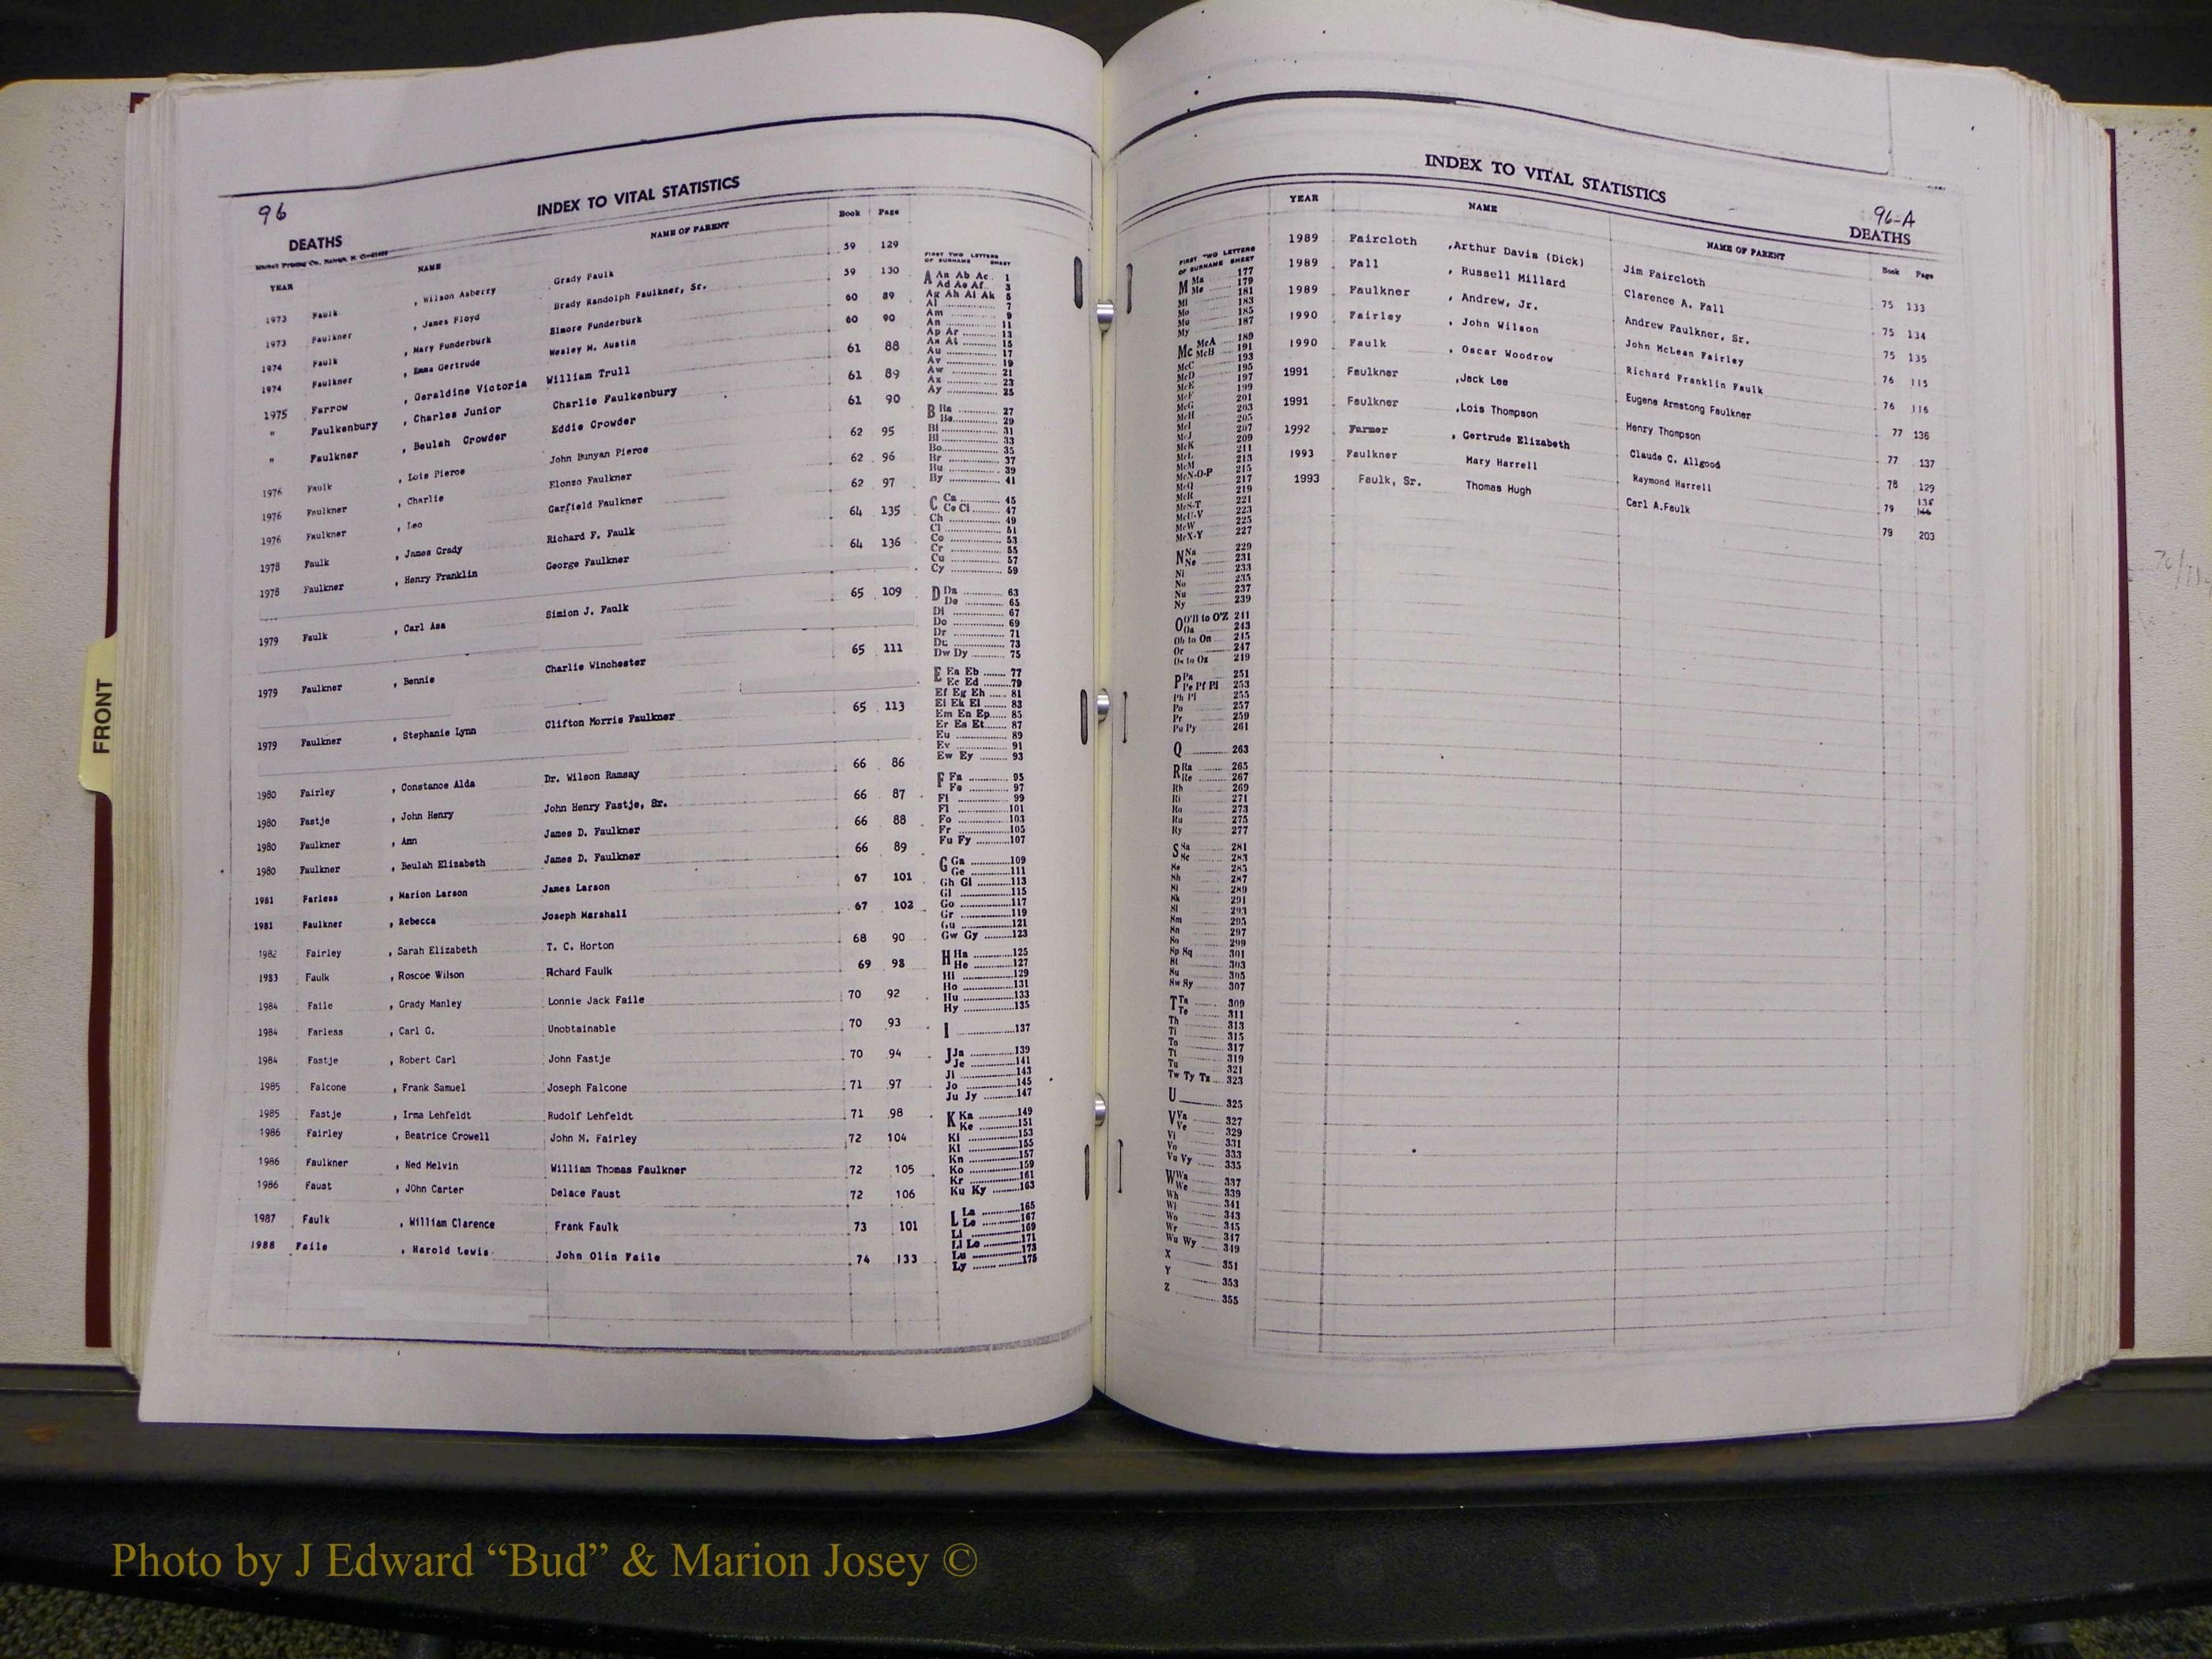 96
INDEX TO VITAL STATISTICS
DEATHS
YEAR NAME NAME OF PARENT Book Page
1973 Faulk , Wilson Asberry Grady Faulk 59 129
1973 Faulkner , James Floyd Brady Randolph Faulkner, Sr. 59 130
1974 Faulk , Mary Funderburk Elmore Funderburk 60 89
1974 Faulkner , Emma Gertrude Wesley M. Austin 60 90
1975 Farrow , Geraldine Victoria William Trull 61 88
" Faulkenbury , Charles Junior Charlie Faulkenbury 61 89
" Faulkner , Beulah Crowder Eddie Crowder 61 90
1976 Faulk , Lois Pierce John Bunyan Pierce 62 95
1976 Faulkner , Charlie Elonzo Faulkner 62 96
1976 Faulkner , Leo Garfield Faulkner 62 97
1978 Faulk , James Grady Richard F. Faulk 64 135
1978 Faulkner , Henry Franklin George Faulkner 64 136
1979 Faulk , Carl Asa Simion J. Faulk 65 109
1979 Faulkner , Bennie Charlie Winchester 65 111
1979 Faulkner , Stephanie Lynn Clifton Morris Faulkner 65 113
1980 Fairley , Constance Alda Dr. Wilson Ramsay 66 86
1980 Fastje , John Henry John Henry Fastje, Sr. 66 87
1980 Faulkner , Ann James D. Faulkner 66 88
1980 Faulkner , Beulah Elizabeth James D. Faulkner 66 89
1981 Farless , Marion Larson James Larson 67 101
1981 Faulkner , Rebecca Joseph Marshall 67 102
1982 Fairley , Sarah Elizabeth T. C. Horton 68 90
1983 Faulk , Roscoe Wilson Richard Faulk 69 98
1984 Faile , Grady Manley Lonnie Jack Faile 70 92
1984 Farless , Carl G. Unobtainable 70 93
1984 Fastje , Robert Carl John Fastje 70 94
1985 Falcone , Frank Samuel Joseph Falcone 71 97
1985 Fastje , Irma Lehfeldt Rudolf Lehfeldt 71 98
1986 Fairley , Beatrice Crowell John M. Fairley 72 104
1986 Faulkner , Ned Melvin William Thomas Faulkner 72 105
1986 Faust , John Carter Delace Faust 72 106
1987 Faulk , William Clarence Frank Faulk 73 101
1988 Faile , Harold Lewis John Olin Faile 74 133
FIRST TWO LETTERS
OF SURNAME SHEET
A Aa Ab Ac 1
Ad Ae Af 3
Ag Ah Ai Ak 5
Al 7
Am 9
An 11
Ap Ar 13
As At 15
Au 17
Av 19
Aw 21
Ax 23
Ay 25
B Ba 27
Be 29
Bi 31
Bl 33
Bo 35
Br 37
Bu 39
By 41
C Ca 45
Ce Ci 47
Ch 49
Cl 51
Co 53
Cr 55
Cu 57
Cy 59
D Da 63
De 65
Di 67
Do 69
Dr 71
Du 73
Dw Dy 75
E Ea Eb 77
Ec Ed 79
Ef Eg Eh 81
Ei Ek El 83
Em En Ep 85
Er Es Et 87
Eu 89
Ev 91
Ew Ey 93
F Fa 95
Fe 97
Fi 99
Fl 101
Fo 103
Fr 105
Fu Fy 107
G Ga 109
Ge 111
Gh Gi 113
Gl 115
Go 117
Gr 119
Gu 121
Gw Gy 123
H Ha 125
He 127
Hi 129
Ho 131
Hu 133
Hy 135
I 137
J Ja 139
Je 141
Ji 143
Jo 145
Ju Jy 147
K Ka 149
Ke 151
Ki 153
Kl 155
Kn 157
Ko 159
Kr 161
Ku Ky 163
L La 165
Le 167
Li 169
Ll Lo 171
Lu 173
Ly 175
INDEX TO VITAL STATISTICS
96-A
DEATHS
YEAR NAME NAME OF PARENT Book Page
1989 Faircloth ,Arthur Davis (Dick) Jim Faircloth 75 133
1989 Fall , Russell Millard Clarence A. Fall 75 134
1989 Faulkner , Andrew, Jr. Andrew Faulkner, Sr. 75 135
1990 Fairley , John Wilson John McLean Fairley 76 115
1990 Faulk , Oscar Woodrow Richard Franklin Faulk 76 116
1991 Faulkner ,Jack Lee Eugene Armstong Faulkner 77 136
1991 Faulkner ,Lois Thompson Henry Thompson 77 137
1992 Farmer , Gertrude Elizabeth Claude C. Allgood 78 129
1993 Faulkner Mary Harrell Raymond Harrell 79
1993 Faulk, Sr. Thomas Hugh Carl A.Faulk 79 203
FIRST TWO LETTERS
OF SURNAME SHEET
M Ma 177
Me 179
Mi 181
Mo 183
Mu 185
My 187
Mc McA 189
McB 191
McC 193
McD 195
McE 197
McF 199
McG 201
McH 203
McI 205
McJ 207
McK 209
McL 211
McM 213
McN-O-P 215
McQ 217
McR 219
McS-T 221
McU-V 223
McW 225
McX-Y 227
N Na 229
Ne 231
Ni 233
No 235
Nu 237
Ny 239
O O'B to O'Z 241
Oa 243
Ob to On 245
Or 247
Os to Oz 249
P Pa 251
Pe Pf Pi 253
Ph Pl 255
Po 257
Pr 259
Pu Py 261
Q 263
R Ra 265
Re 267
Rh 269
Ri 271
Ro 273
Ru 275
Ry 277
S Sa 281
Sc 283
Se 285
Sh 287
Si 289
Sk 291
Sl 293
Sm 295
Sn 297
So 299
Sp Sq 301
St 303
Su 305
Sw Sy 307
T Ta 309
Te 311
Th 313
Ti 315
To 317
Tr 319
Tu 321
Tw Ty Tz 323
U 325
V Va 327
Ve 329
Vi 331
Vo 333
Vu Vy 335
W Wa 337
We 339
Wh 341
Wi 343
Wo 345
Wr 347
Wu Wy 349
X 351
Y 353
Z 355
FRONT
Photo by J Edward “Bud” & Marion Josey ©